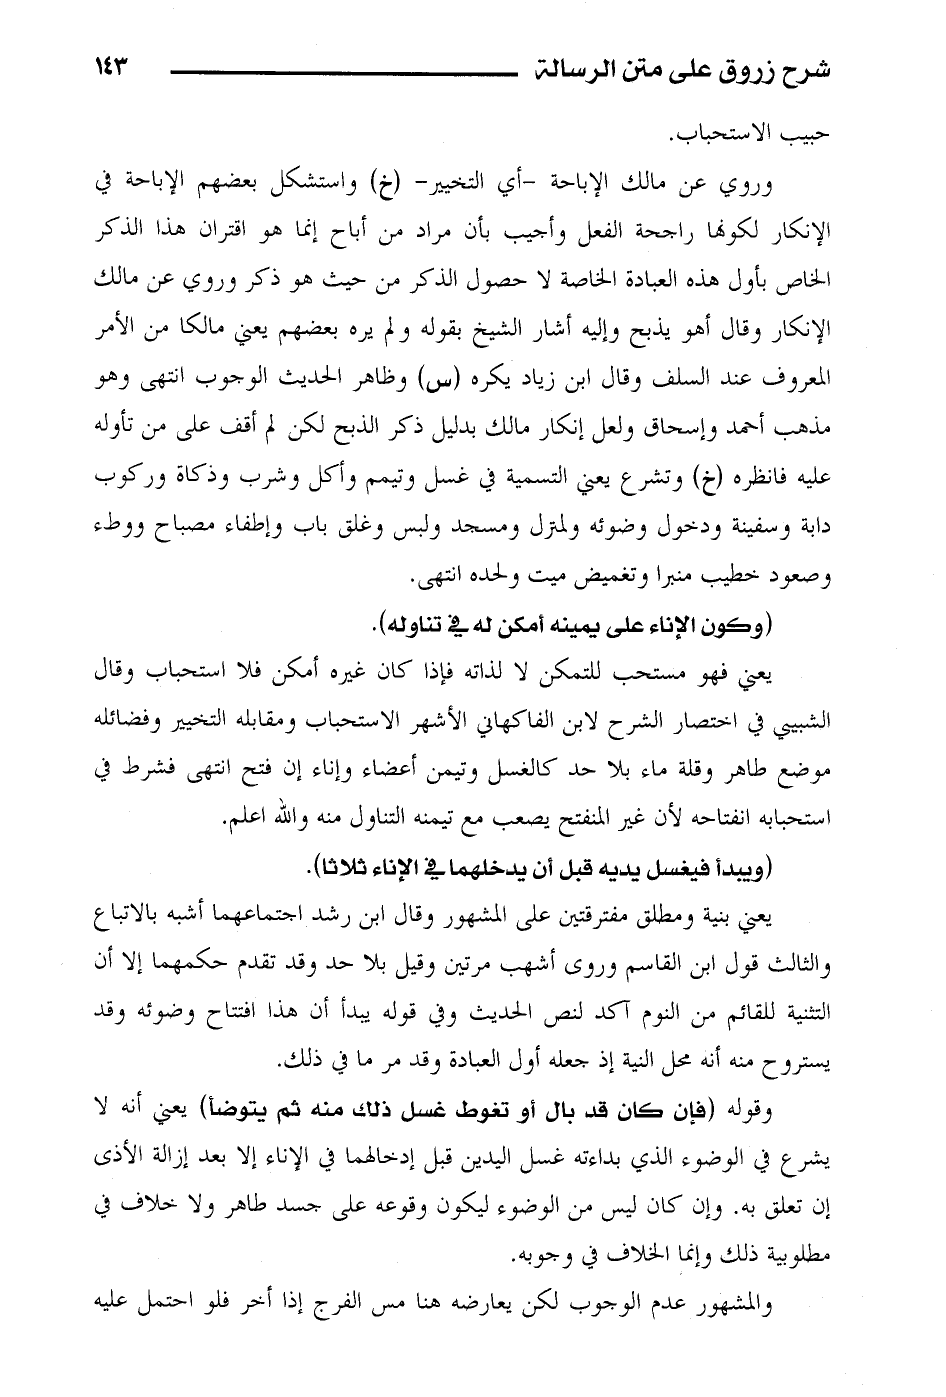 شرح زروق على متن الرسالة ١٤٣
حبيب الاستحباب.
وروي عن مالك الإباحة -أي التخيير- (خ) واستشكل بعضهم الإباحة في
الإنكار لكونها راجحة الفعل وأجيب بأن مراد من أباح إنما هو اقتران هذا الذكر
الخاص بأول هذه العبادة الخاصة لا حصول الذكر من حيث هو ذكر وروي عن مالك
الإنكار وقال أهو يذبح وإليه أشار الشيخ بقوله ولم يره بعضهم يعني مالكا من الأمر
المعروف عند السلف وقال ابن زياد يكره (س) وظاهر الحديث الوجوب انتهى وهو
مذهب أحمد وإسحاق ولعل إنكار مالك بدليل ذكر الذبح لكن لم أقف على من تأوله
عليه فانظره (خ) وتشرع يعني التسمية في غسل وتيمم وأكل وشرب وذكاة وركوب
دابة وسفينة ودخول وضوئه ولمنزل ومسجد ولبس وغلق باب وإطفاء مصباح ووطء
وصعود خطيب منبرا وتغميض ميت ولحده انتهى.
(وكون الإناء على يمينه أمكن له في تناوله).
يعني فهو مستحب للتمكن لا لذاته فإذا كان غيره أمكن فلا استحباب وقال
الشبيبي في اختصار الشرح لابن الفاكهاني الأشهر الاستحباب ومقابله التخيير وفضائله
موضع طاهر وقلة ماء بلا حد كالغسل وتيمن أعضاء وإناء إن فتح انتهى فشرط في
استحبابه انفتاحه لأن غير المنفتح يصعب مع تيمنه التناول منه والله اعلم.
(ويبدأ فيغسل يديه قبل أن يدخلهما في الإناء ثلاثا).
يعني بنية ومطلق مفترقتين على المشهور وقال ابن رشد اجتماعهما أشبه بالاتباع
والثالث قول ابن القاسم وروى أشهب مرتين وقيل بلا حد وقد تقدم حكمهما إلا أن
التثنية للقائم من النوم آكد لنص الحديث وفي قوله يبدأ أن هذا افتتاح وضوئه وقد
يستروح منه أنه محل النية إذ جعله أول العبادة وقد مر ما في ذلك.
وقوله (فإن كان قد بال أو تغوط غسل ذلك منه ثم يتوضأ) يعني أنه لا
يشرع في الوضوء الذي بداءته غسل اليدين قبل إدخالهما في الإناء إلا بعد إزالة الأذى
إن تعلق به. وإن كان ليس من الوضوء ليكون وقوعه على جسد طاهر ولا خلاف في
مطلوبية ذلك وإنما الخلاف في وجوبه.
والمشهور عدم الوجوب لكن يعارضه هنا مس الفرج إذا أخر فلو احتمل عليه